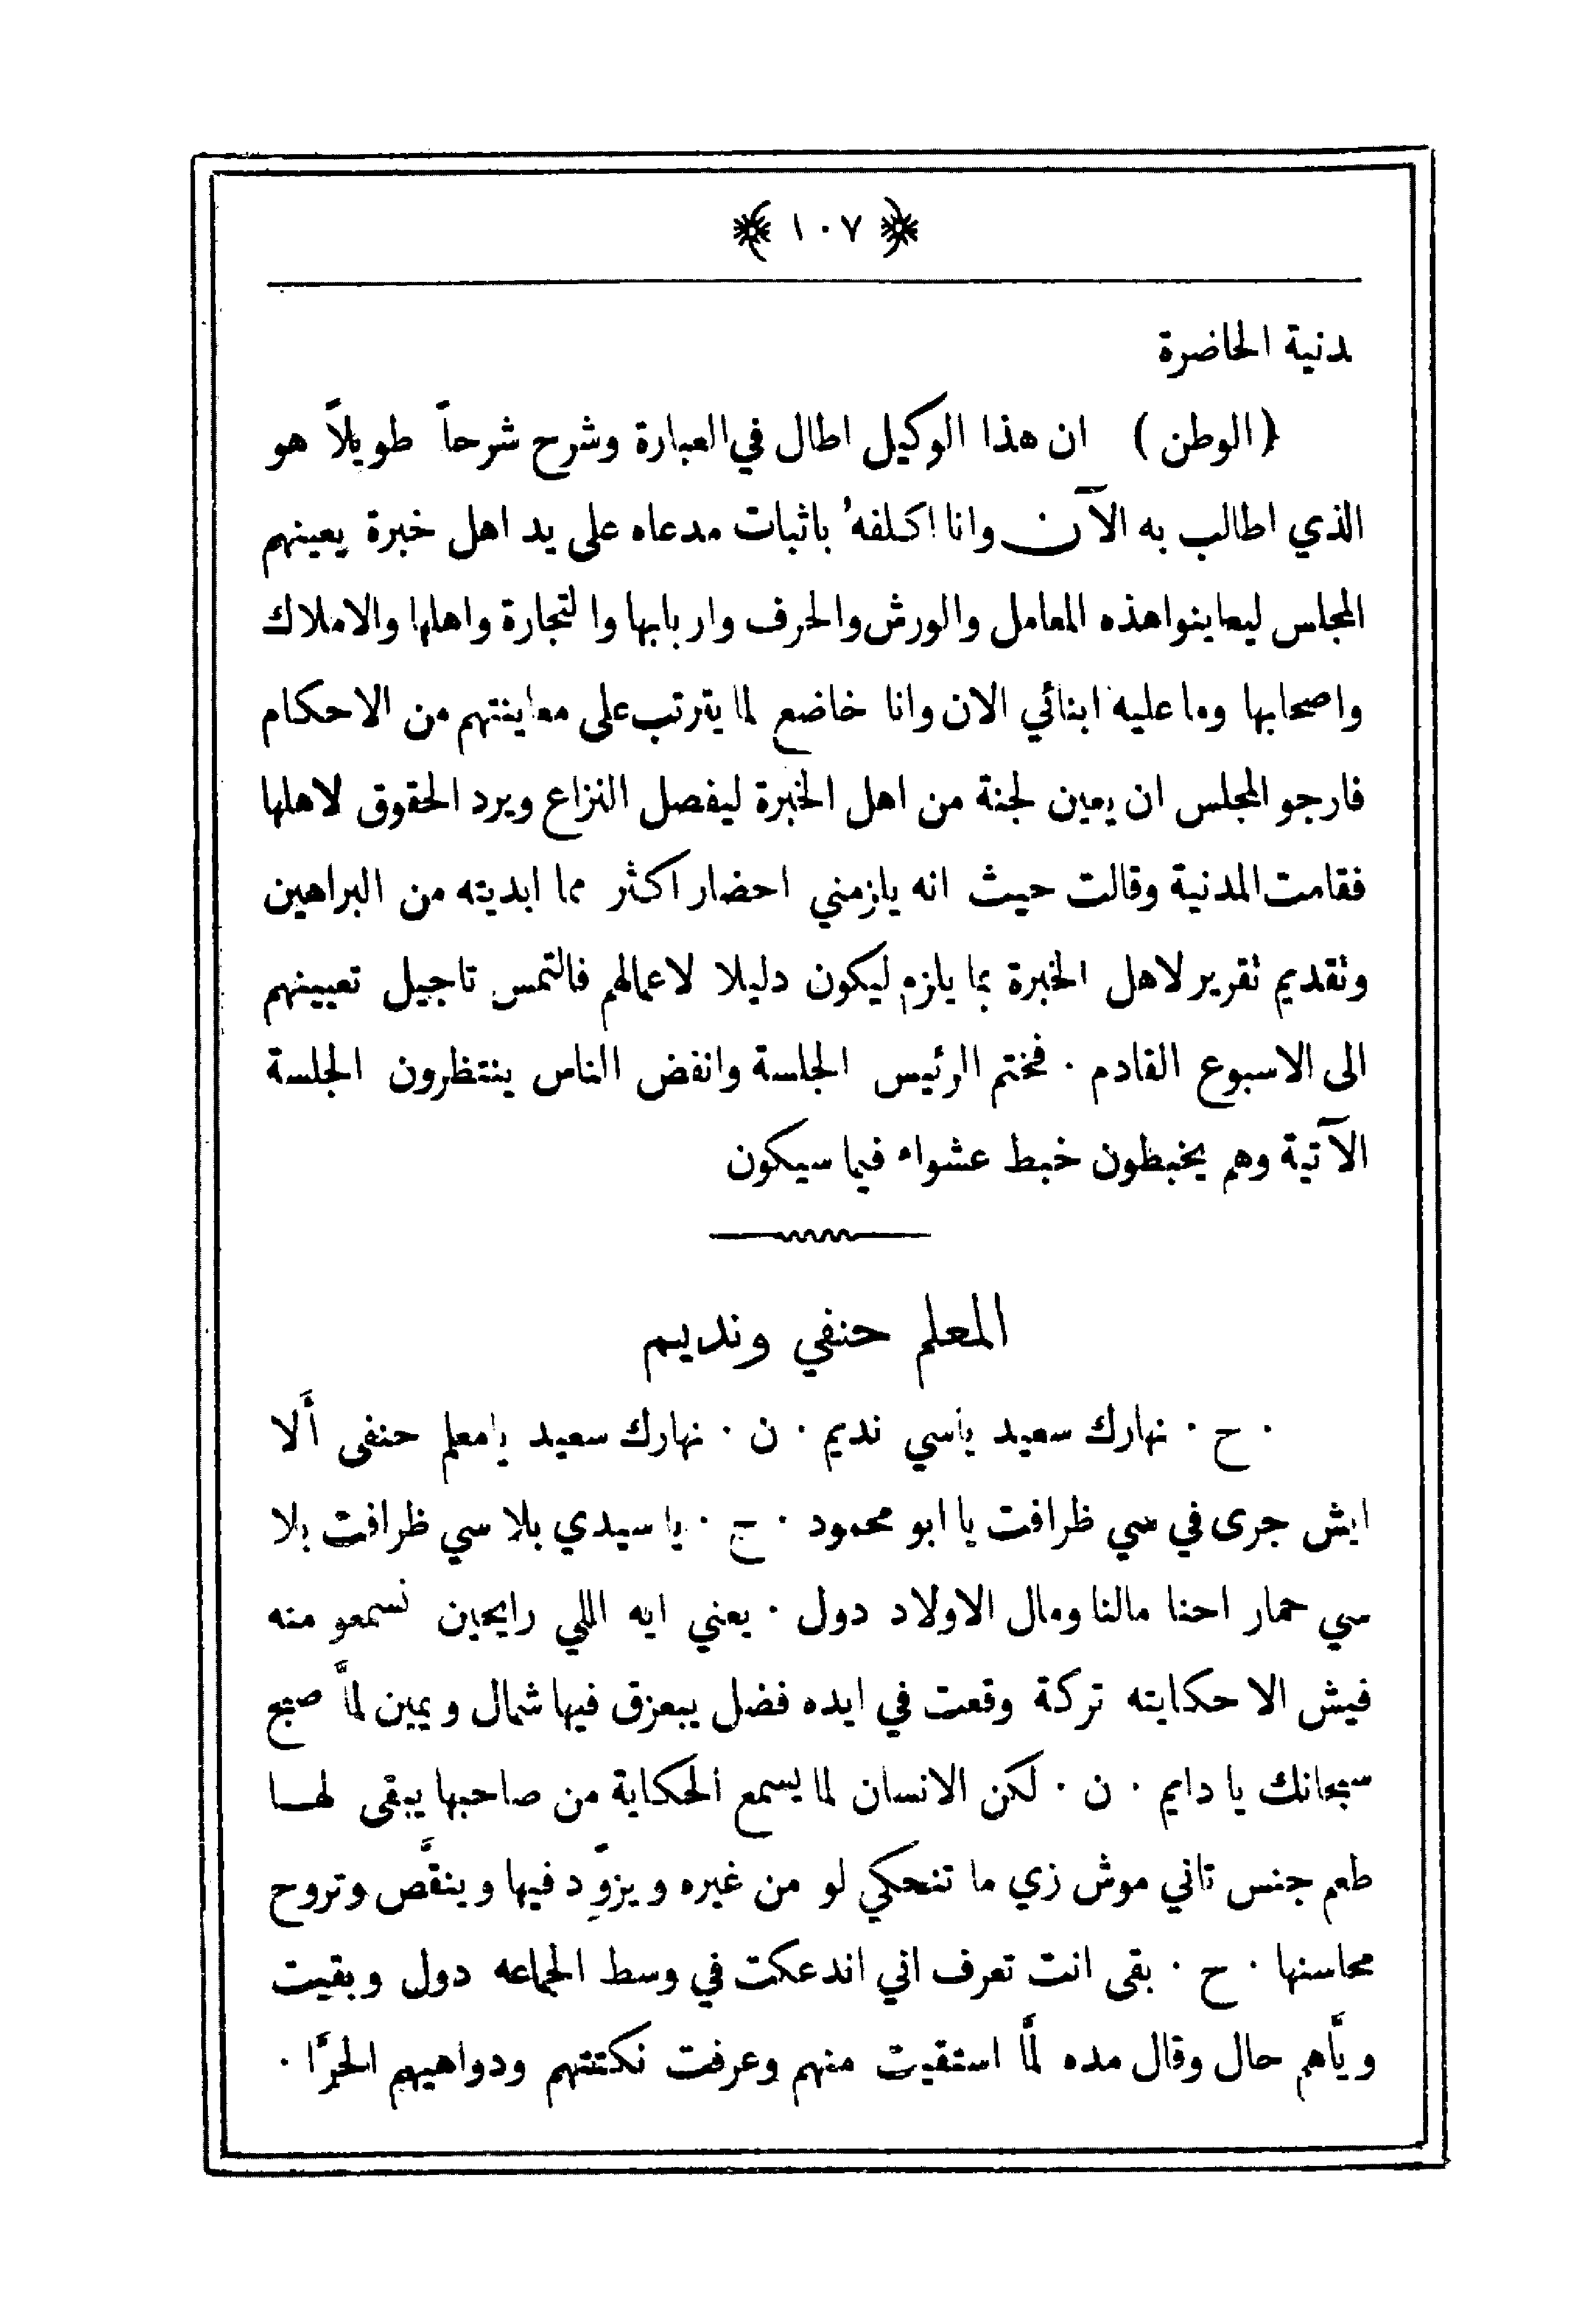 ﴿ ١٠٧ ﴾
لدنية الحاضرة
(الوطن) ان هذا الوكيل اطال في العبارة وشرح شرحاً طويلاً هو
الذي اطالب به الآن وانا اكلفهُ باثبات مدعاه على يد اهل خبرة يعينهم
المجلس ليعاينوا هذه المعامل والورش والحرف واربابها والتجارة واهلها والاملاك
واصحابها وما عليه ابنائي الان وانا خاضع لما يترتب على معاينتهم من الاحكام
فارجو المجلس ان يعين لجنة من اهل الخبرة ليفصل النزاع ويرد الحقوق لاهلها
فقامت المدنية وقالت حيث انه يلزمني احضار اكثر مما ابديته من البراهين
وتقديم تقرير لاهل الخبرة بما يلزم ليكون دليلا لاعمالهم فالتمس تاجيل تعيينهم
الى الاسبوع القادم · فختم الرئيس الجلسة وانفض الناس ينتظرون الجلسة
الآتية وهم يخبطون خبط عشواء فيما سيكون
المعلم حنفي ونديم
· ح · نهارك سعيد ياسي نديم · ن · نهارك سعيد يامعلم حنفى أَلا
ايش جرى في سي ظرافت يا ابو محمود · ح · يا سيدي بلا سي ظرافت بلا
سي حمار احنا مالنا ومال الاولاد دول · يعني ايه اللي رايحين نسمعو منه
فيش الا حكايته تركة وقعت في ايده فضل يبعزق فيها شمال ويمين لمَّا صبح
سبحانك يا دايم · ن · لكن الانسان لما يسمع الحكاية من صاحبها يبقى لهـا
طعم جنس تاني موش زي ما تنحكي لو من غيره ويزوِّد فيها وينقَّص وتروح
محاسنها · ح · بقى انت تعرف اني اندعكت في وسط الجماعه دول وبقيت
ويَّاهم حال وقال مده لمَّا استقيت منهم وعرفت نكتتهم ودواهيهم الحرَّا ·